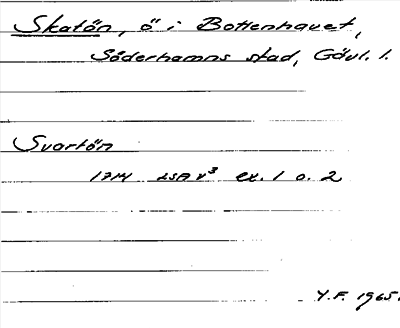 Skatön, ö i Bottenhavet,
Söderhamns stad, Gävl. l.
Svartön
1714 LSA V³ ex. 1 o. 2
Y.F. 1965.